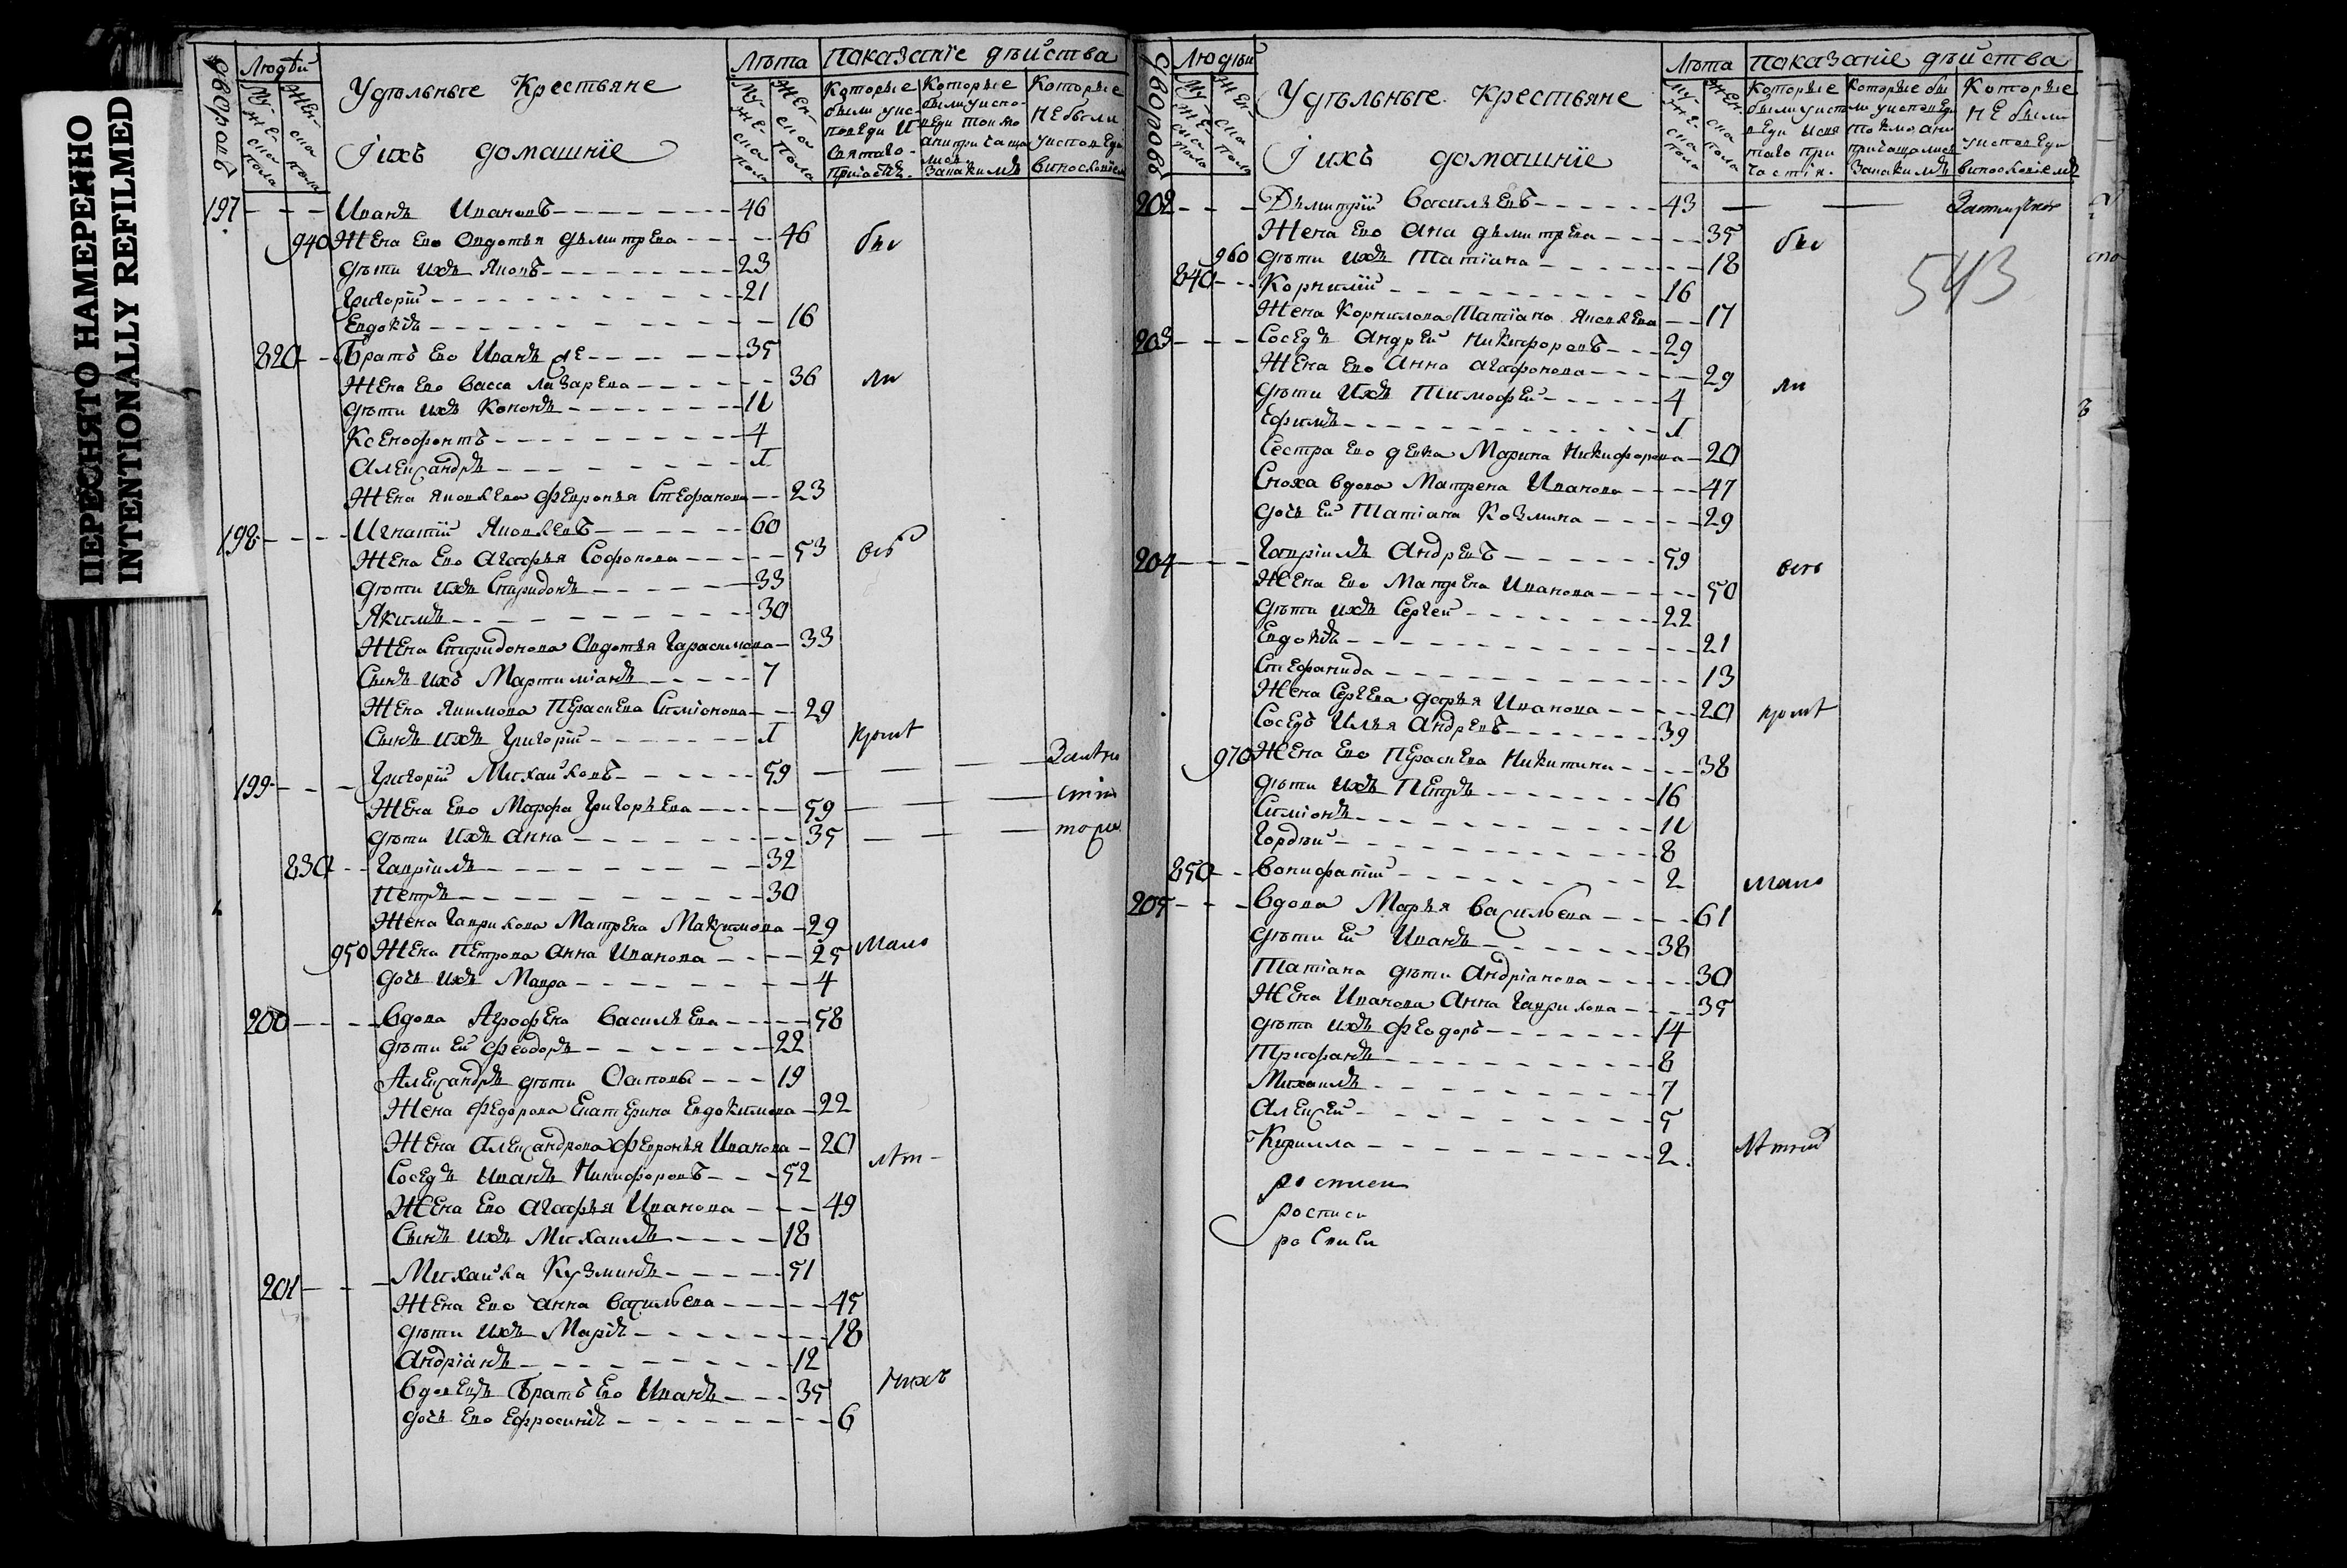 ПЕРЕСНЯТО НАМЕРЕННО
INTENTIONALLY REFILMED
Дворовъ
Людѣй
Му-жес-ка пола
Жен-ска пола
Удѣльные Крестьяне
Iихъ домашнїе
Лѣта
Му-жес-ка пола
Жен-ска пола
Показанїе дѣйства
Которые были уис-поведи и святаго причастiя
Которые были уиспо-веди токмо а непричаща-лися
Которые не были уисповеди
197 - - - Иванъ Ивановъ - - - 46
940 Жена Ево Овдотья Дѣмитрева - - - 46 бы
дѣти ихъ Яковъ - - - 23
Григорїй - - - 21
Евдокїя - - - 16
820 - - Братъ Ево Иванъ же - - - 35
Жена Ево Васса Лазарева - - - 36 ли
дѣти ихъ Кононъ - - - 11
Ксенофонтъ - - - 4
Александръ - - - 1
Жена Яковлева Февронья Стефанова - - 23
198 - - - Игнатїй Яковлевъ - - - 60
Жена Ево Агафья Софонова - - - 53
дѣти ихъ Спиридонъ - - - 33
Якимъ - - - 30
Жена Спиридонова Овдотья Гарасимова - 33
Сынъ ихъ Мартимїанъ - - - 7
Жена Якимова Параскева Симїонова - - 29
Сынъ ихъ Григорїй - - - 1 кромѣ
199 - - - Григорїй Михайловъ - - - 59
Жена Ево Марфа Григорьева - - - 59
дѣти ихъ Анна - - - 35
830 - - Гаврїилъ - - - 32
Петръ - - - 30
Жена Гаврилова Матрена Максимова - 29
950 Жена Петрова Анна Иванова - - - 25 мало
дочь ихъ Мавра - - - 4
200 - - - Вдова Агрофена Васильева - - - 58
дѣти Ей Феодоръ - - - 22
Александръ дѣти Осиповы - - - 19
Жена Федорова Екатерина Евдокимова - 22
Жена Александрова Февронья Иванова - 20
Соседъ Иванъ Никифоровъ - - - 52 лѣт-
Жена Ево Агафья Иванова - - - 49
Сынъ ихъ Михаилъ - - - 18
201 - - - Михайла Кузминъ - - - 51
Жена Ево Анна Васильева - - - 45
дѣти ихъ Марїя - - - 18
Андрїанъ - - - 12
Вдовецъ Братъ Ево Иванъ - - - 35 нихъ
дочь Ево Ефросинїя - - - 6
Дворовъ
Людѣй
Му-жес-ка пола
Жен-ска пола
Удѣльные Крестьяне
Iихъ домашнїе
Лѣта
Му-жес-ка пола
Жен-ска пола
показанїе дѣйства
Которые были уиспо-веди и свя-таго при-частiя
Которые бы-ли уисповеди токмо а не причащалися
Которые не были уисповеди
202 - - - Дѣмитрїй Васильевъ - - - 43
Жена Ево Анна Дѣмитрева - - - 35 бы
960 дѣти ихъ Татїана - - - 18
543
840 - - Корнилїй - - - 16
Жена Корнилова Татїана Яковлева - - 17
203 - - - Соседъ Андрей Никифоровъ - - - 29
Жена Ево Анна Агафонова - - - 29 ли
дѣти ихъ Тимофей - - - 4
Ефимъ - - - 1
Сестра Ево девка Марина Никифорова - 20
Сноха вдова Матрена Иванова - - - 47
дочь Ей Татїана Козмина - - - 29
204 - - - Гаврїилъ Андревъ - - - 59
Жена Ево Матрена Иванова - - - 50
дѣти ихъ Сергей - - - 22
Евдокїя - - - 21
Стефанида - - - 13
Жена Сергева Дарья Иванова - - - 20 кромѣ
Соседъ Илья Андревъ - - - 39
970 Жена Ево Параскева Никитина - - - 38
дѣти ихъ Петръ - - - 16
Симїонъ - - - 11
Гордѣй - - - 8
850 - - Вонифатїй - - - 2 мало
205 - - - Вдова Марья Васильева - - - 61
дѣти Ей Иванъ - - - 38
Татїана дѣти Андрїанова - - - 30
Жена Иванова Анна Гаврилова - - - 35
дѣти ихъ Феодоръ - - - 14
Трифанъ - - - 8
Михаилъ - - - 7
Алексей - - - 5
Кирилла - - - 2 лѣтнид
росписи
росписи
росписи